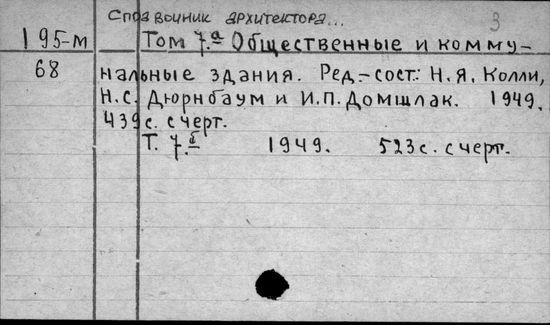 Справочник архитектора... 3
195-м Том 7.а Общественные и комму-
68 нальные здания. Ред.-сост.: Н.Я. Колли,
Н.С. Дюрнбаум и И.П. Домшлак. 1949.
439с. с черт.
Т. 7.б 1949. 523с. с черт.